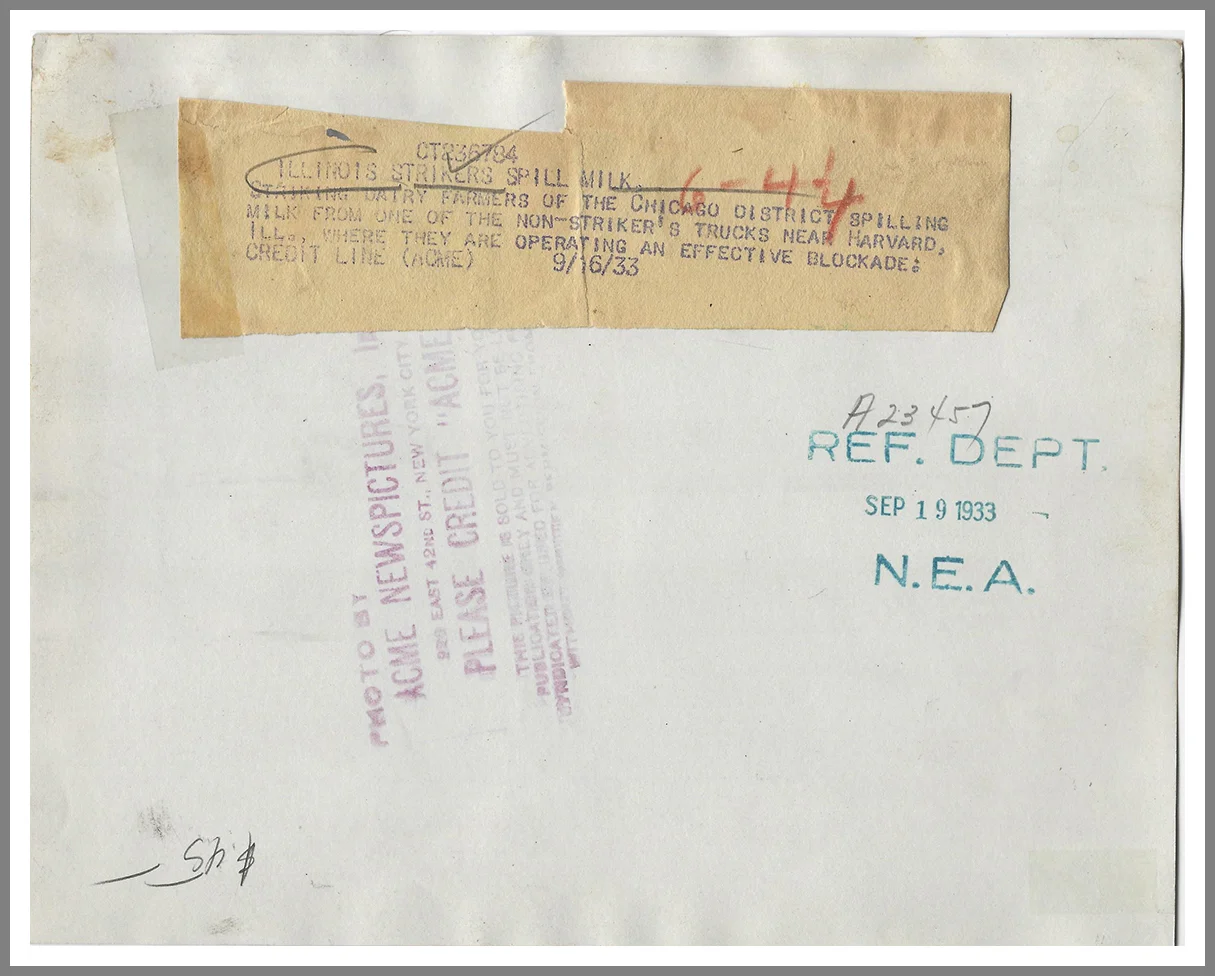 CT236784
ILLINOIS STRIKERS SPILL MILK.
STRIKING DAIRY FARMERS OF THE CHICAGO DISTRICT SPILLING
MILK FROM ONE OF THE NON-STRIKER'S TRUCKS NEAR HARVARD,
ILL., WHERE THEY ARE OPERATING AN EFFECTIVE BLOCKADE:
CREDIT LINE (ACME) 9/16/33
6-4¼
PHOTO BY
ACME NEWSPICTURES, IN
220 EAST 42ND ST., NEW YORK CITY
PLEASE CREDIT "ACME
THIS PICTURE IS SOLD TO YOU FOR YO
PUBLICATION ONLY AND MUST NOT BE LO
SYNDICATED OR USED FOR ADVERTISING
WITHOUT WRITTEN PERM
A23457
REF. DEPT.
SEP 19 1933
N.E.A.